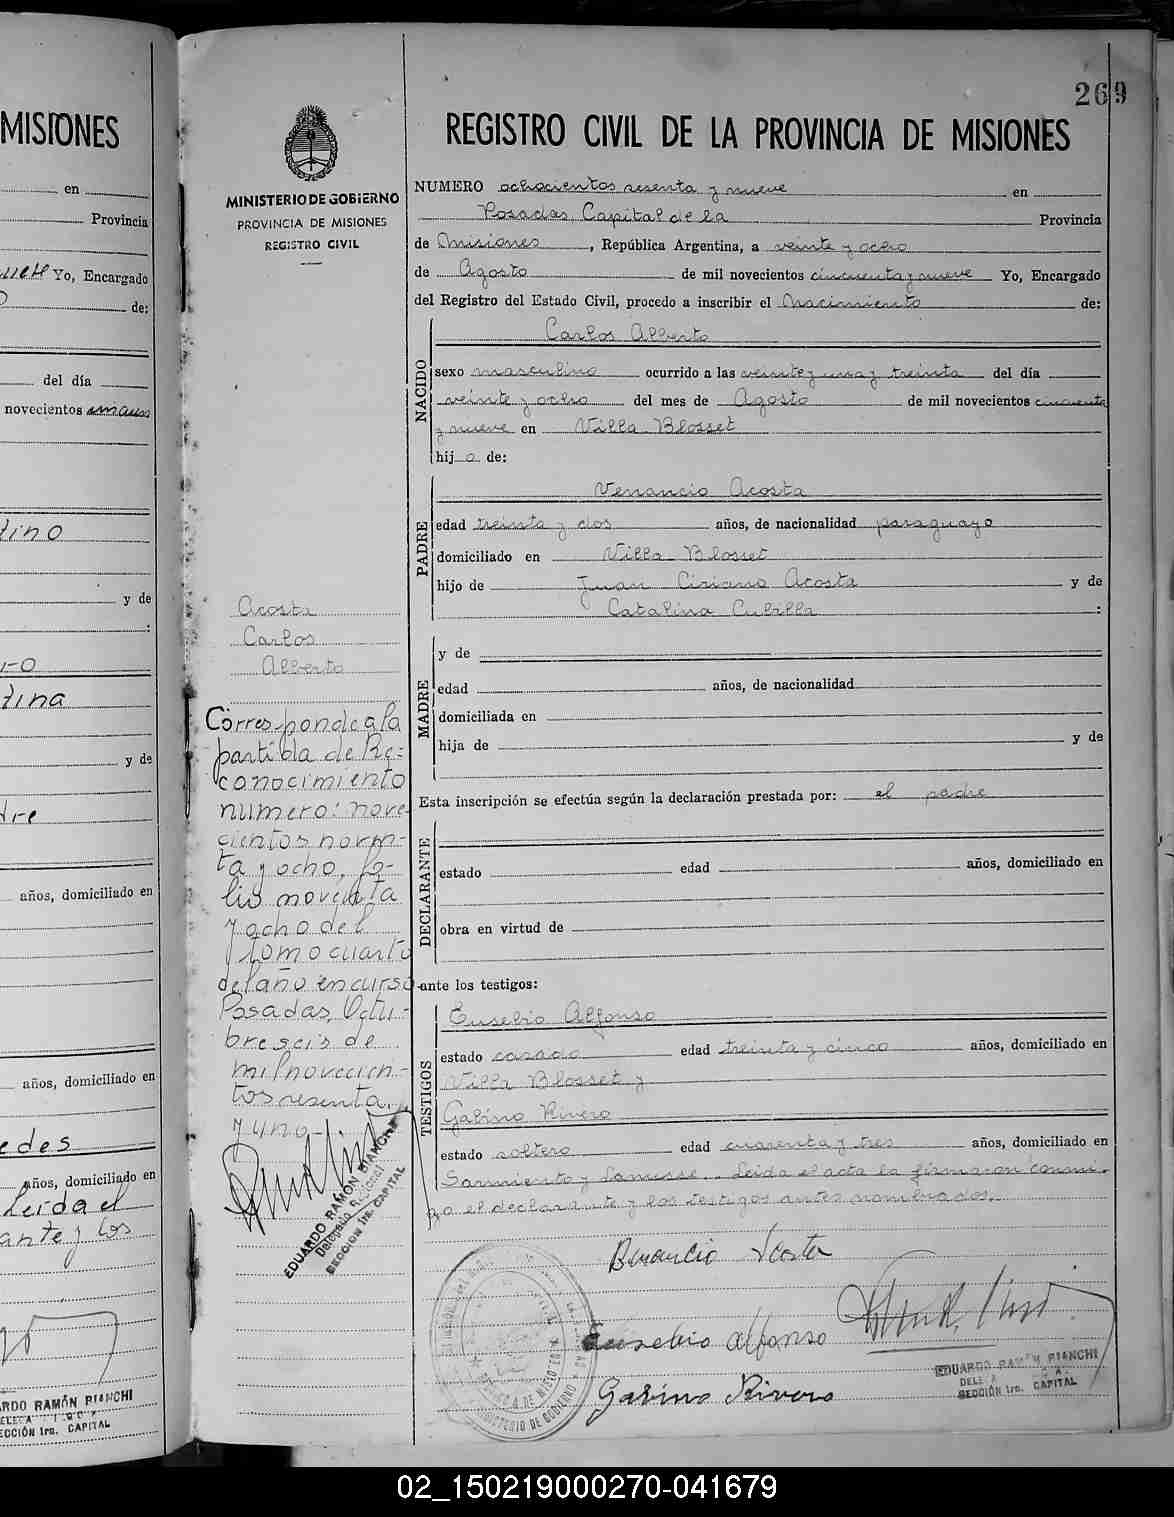 MISIONES
en
Provincia
Yo, Encargado
de:
del día
novecientos
tino
y de
:
tina
y de
dre
años, domiciliado en
años, domiciliado en
edes
años, domiciliado en
Leída el
ante y los
RDO RAMÓN BIANCHI
SECCIÓN 1ra. CAPITAL
MINISTERIO DE GOBIERNO
PROVINCIA DE MISIONES
REGISTRO CIVIL
Acosta
Carlos
Alberto
Corresponde a la
partida de Re=
conocimiento
numero: nove
cientos noven-
ta y ocho, fo-
lio noventa
y ocho del
tomo cuarto
del año en curso
Posadas, Octu-
bre seis de
mil novecien-
tos sesenta
y uno-
EDUARDO RAMÓN BIANCHI
SECCION 1ra. CAPITAL
269
REGISTRO CIVIL DE LA PROVINCIA DE MISIONES
NUMERO ochocientos sesenta y nueve en
Posadas Capital de la Provincia
de Misiones, República Argentina, a veinte y ocho
de Agosto de mil novecientos cincuenta y nueve Yo, Encargado
del Registro del Estado Civil, procedo a inscribir el Nacimiento de:
NACIDO
Carlos Alberto
sexo masculino ocurrido a las veinte y una y treinta del día
veinte y ocho del mes de Agosto de mil novecientos cincuenta
y nueve en Villa Blosset
hijo de:
PADRE
Venancio Acosta
edad treinta y dos años, de nacionalidad paraguayo
domiciliado en Villa Blosset
hijo de Juan Ciriano Acosta y de
Catalina Cubilla :
MADRE
y de
edad años, de nacionalidad
domiciliada en
hija de y de
Esta inscripción se efectúa según la declaración prestada por: el padre
DECLARANTE
estado edad años, domiciliado en
obra en virtud de
ante los testigos:
TESTIGOS
Eusebio Alfonso
estado casado edad treinta y cinco años, domiciliado en
Villa Blosset y
Gabino Rivero
estado soltero edad cuarenta y tres años, domiciliado en
Sarmiento y Lanusse.. Leida el acta la firmaron conmi-
go el declarante y los testigos antes nombrados.-
Benancio Acosta
Eusebio Alfonso
Gabino Rivero
EDUARDO RAMÓN BIANCHI
SECCIÓN 1ra. CAPITAL
02_150219000270-041679